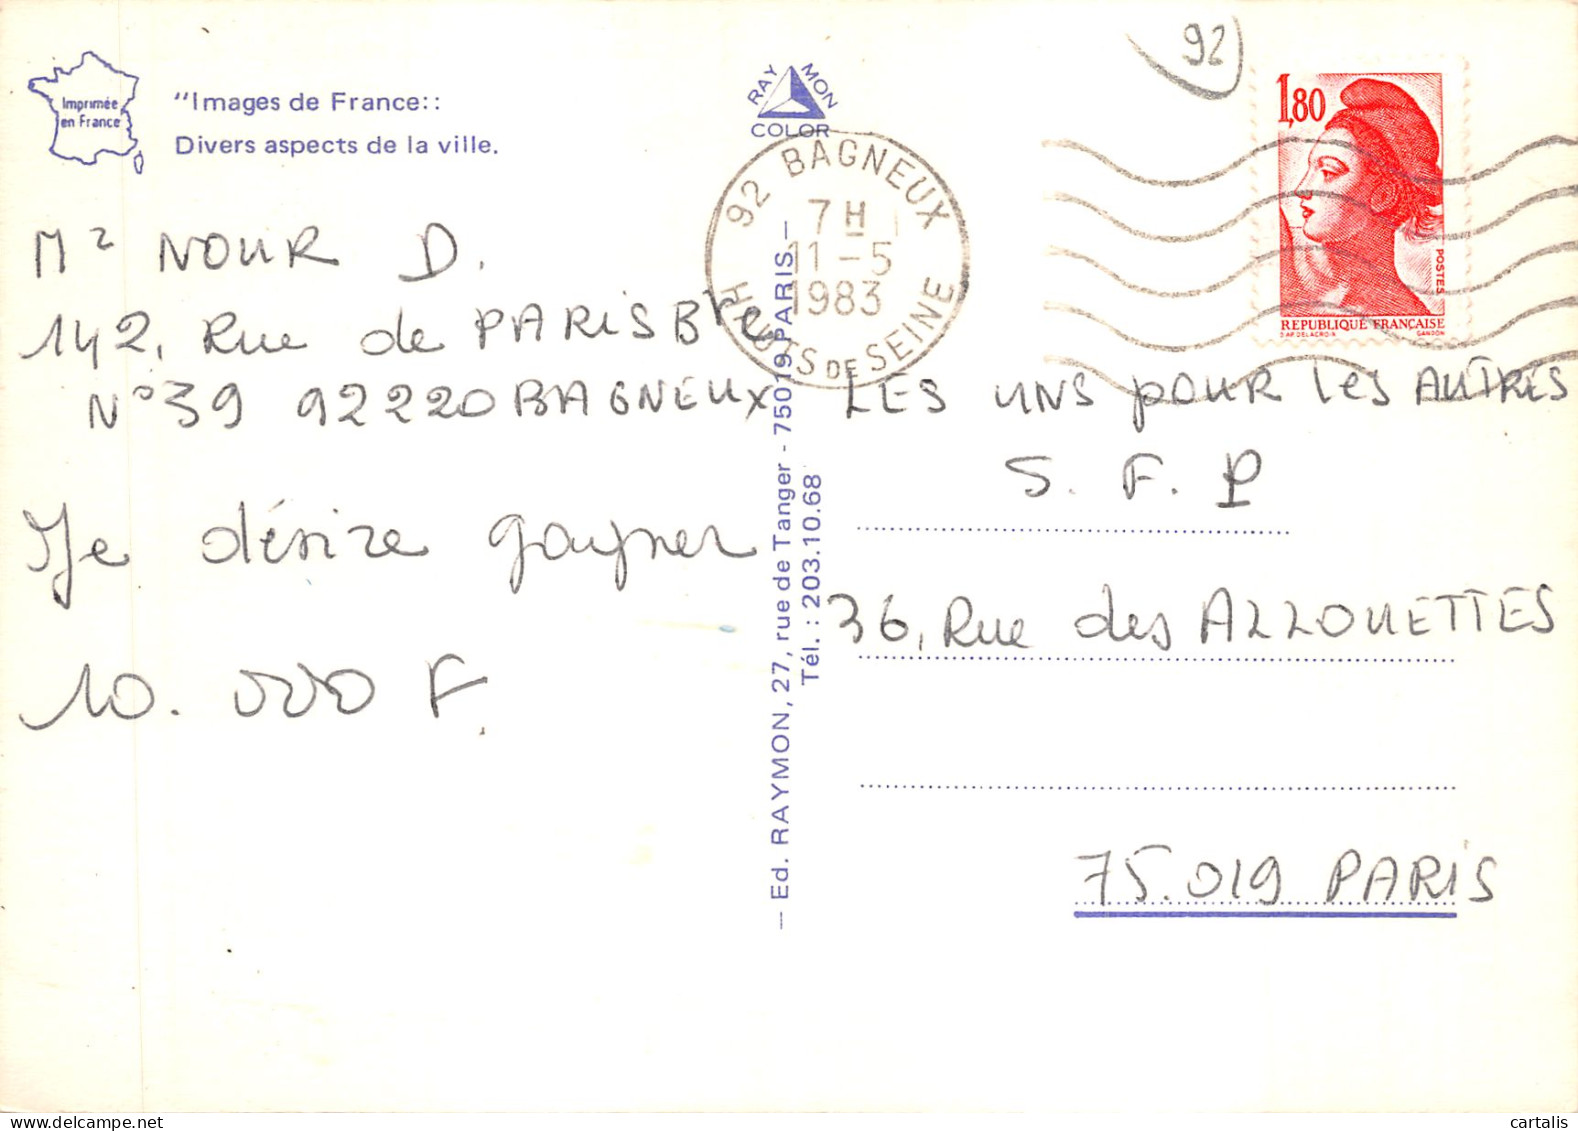 Imprimée
en France
"Images de France::
Divers aspects de la ville.
RAYMON
COLOR
92
92 BAGNEUX
7H
11-5
1983
HAUTS DE SEINE
1,80
POSTES
REPUBLIQUE FRANÇAISE
D'AP. DELACROIX GANDON
Mr NOUR D.
142, Rue de PARIS Bte
N° 39 92220 BAGNEUX
Je désire gagner
10.000 F.
— Ed. RAYMON, 27, rue de Tanger - 75019 PARIS —
Tél. : 203.10.68
LES UNS pOUR les AUTRES
S. F. P
36, Rue des ALLOUETTES
75.019 PARIS
cartalis